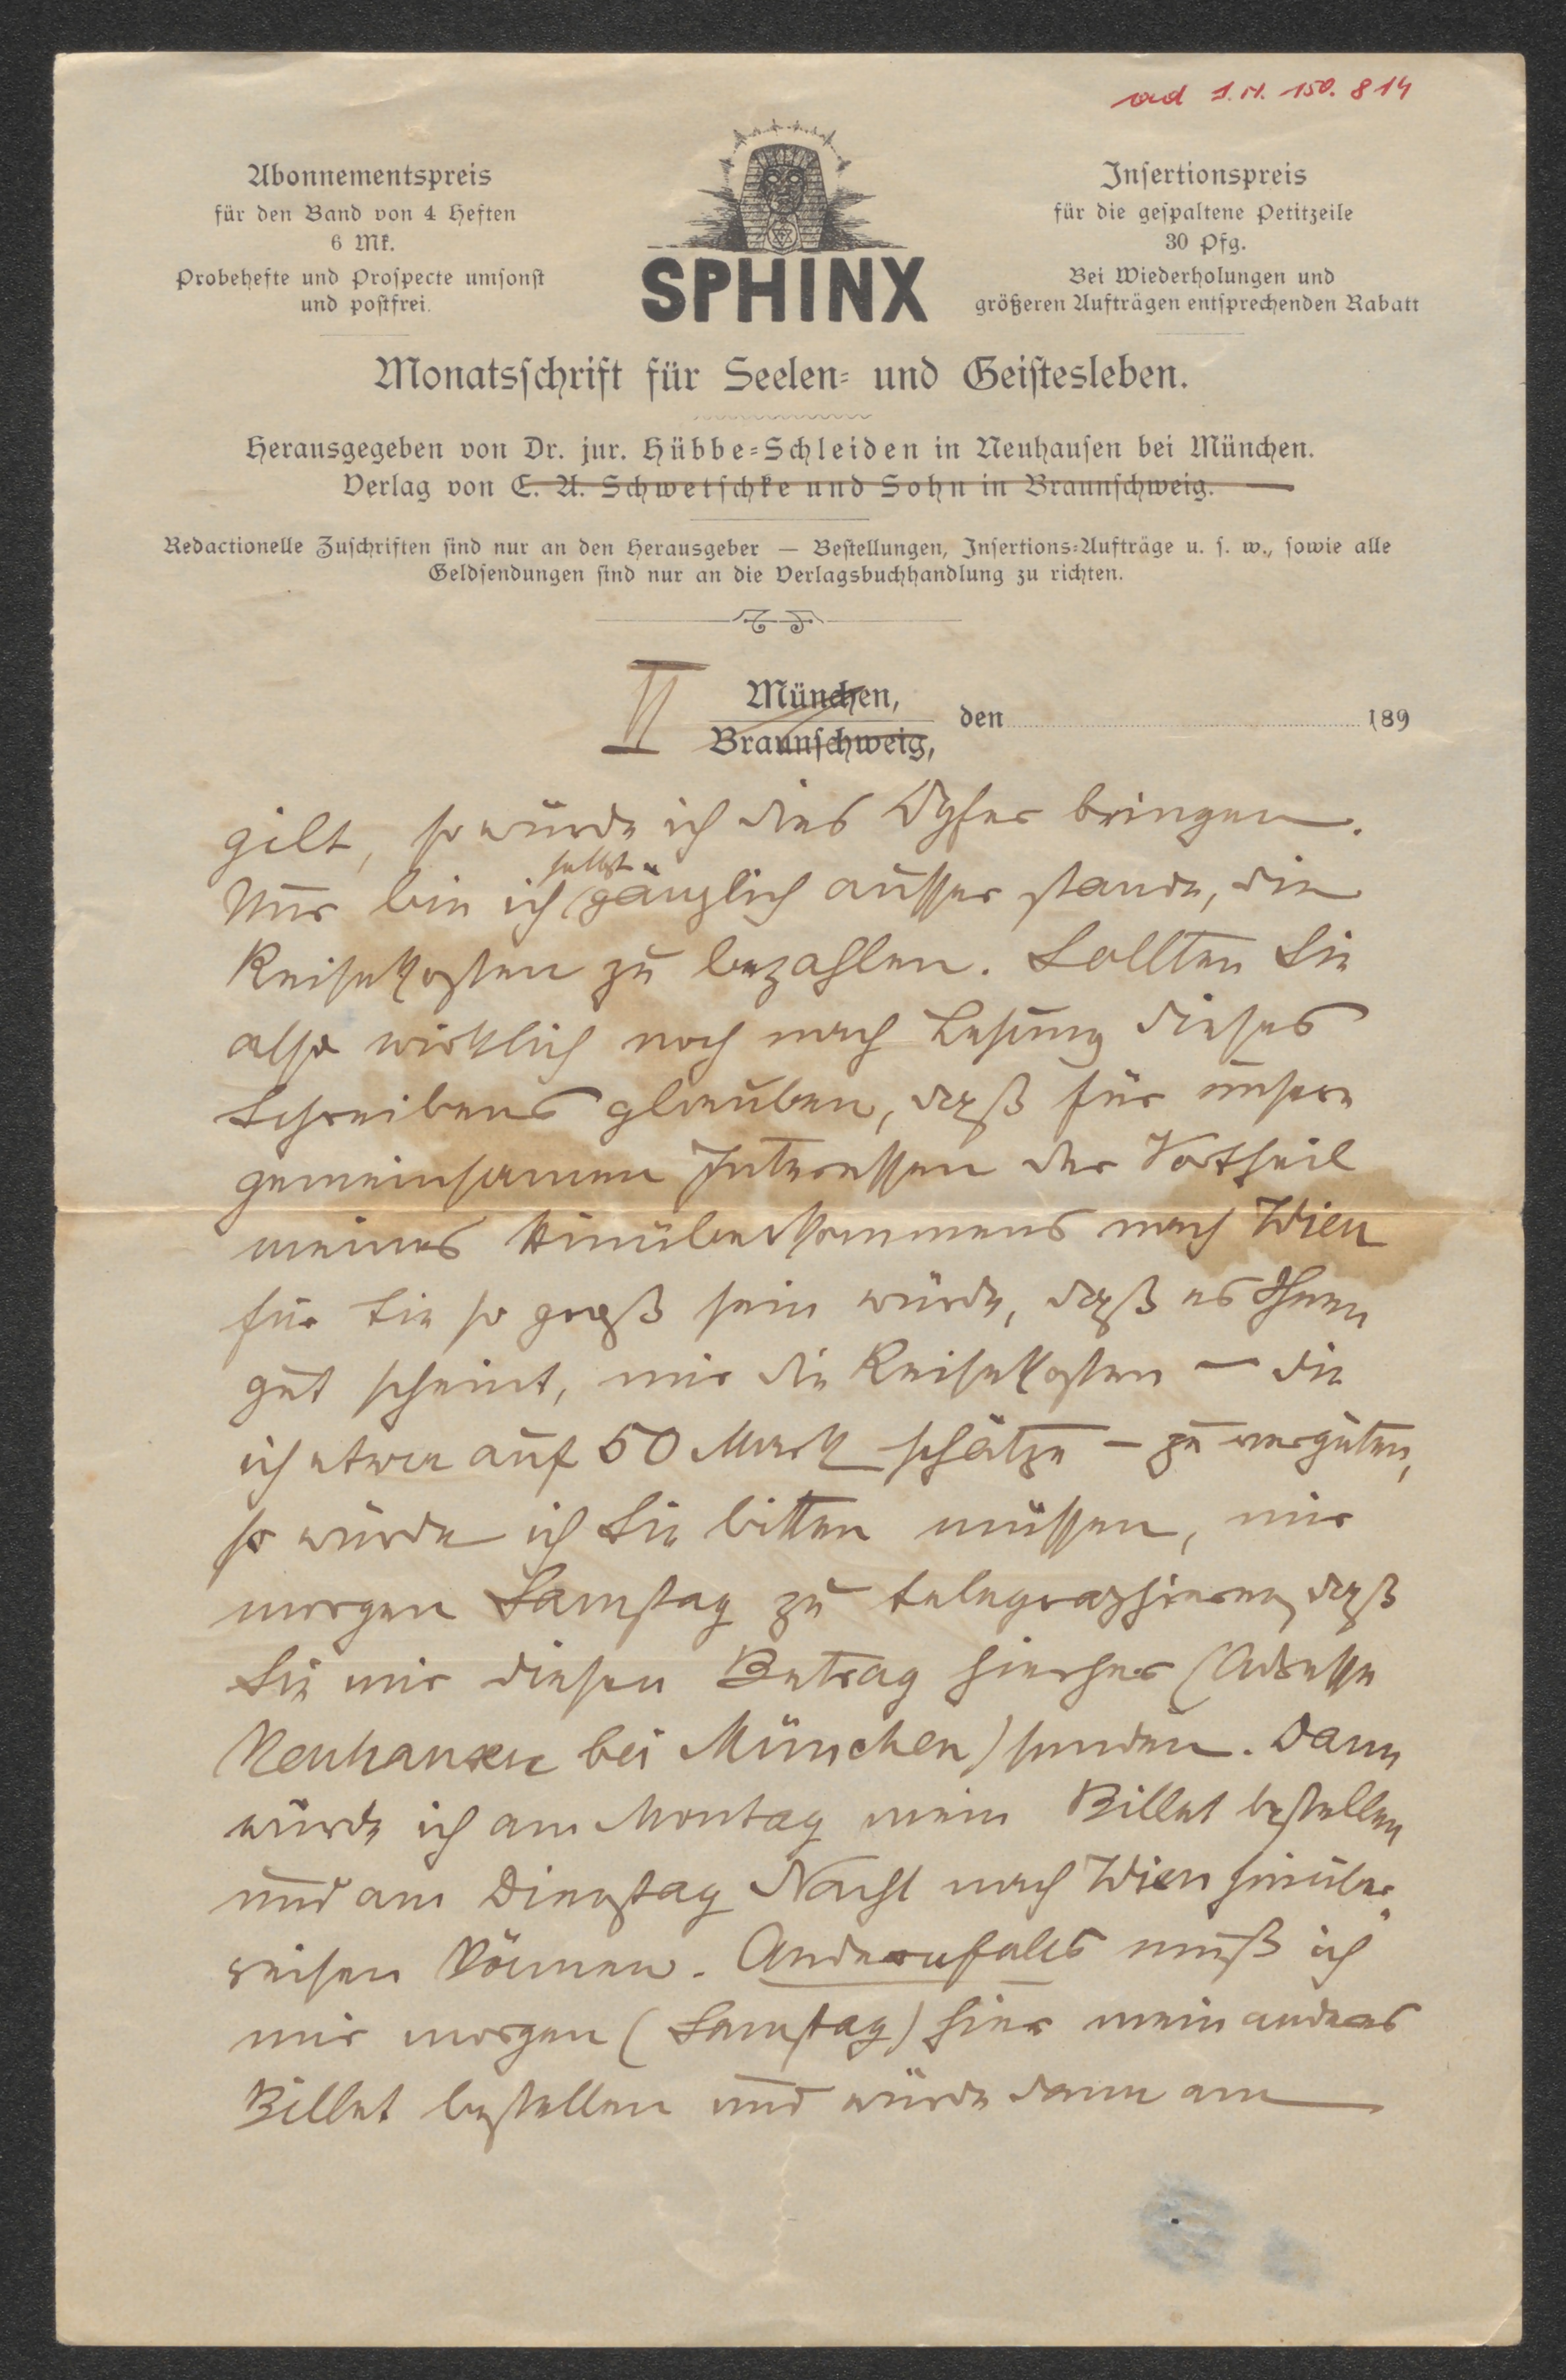 ad I.N. 150.814
Abonnementspreis
für den Band von 4 Heften
6 Mk.
Probehefte und Prospecte umsonst
und postfrei.
SPHINX
Insertionspreis
für die gespaltene Petitzeile
30 Pfg.
Bei Wiederholungen und
größeren Aufträgen entsprechenden Rabatt
Monatsschrift für Seelen- und Geistesleben.
Herausgegeben von Dr. jur. Hübbe-Schleiden in Neuhausen bei München.
Verlag von E. A. Schwetschke und Sohn in Braunschweig.
Redactionelle Zuschriften sind nur an den Herausgeber — Bestellungen, Insertions-Aufträge u. s. w., sowie alle
Geldsendungen sind nur an die Verlagsbuchhandlung zu richten.
II
München,
Braunschweig,
den 189
gilt, so würde ich dies Opfer bringen.
Nur bin ich selbst gänzlich ausser stande, die
Reisekosten zu bezahlen. Sollten Sie
also wirklich noch nach Lesung dieses
Schreibens glauben, daß für unsere
gemeinsamen Interessen der Vortheil
meines Hinüberkommens nach Wien
für Sie so groß sein würde, daß es Ihnen
gut scheint, mir die Reisekosten — die
ich etwa auf 50 Mark schätze — zu vergüten,
so würde ich Sie bitten müssen, mir
morgen Samstag zu telegraphieren, daß
Sie mir diesen Betrag hierher (Adresse
Neuhausen bei München) senden. Dann
würde ich am Montag mein Billet bestellen
und am Dienstag Nacht nach Wien hinüber-
reisen können. Andernfalls muß ich
mir morgen (Samstag) hier mein anderes
Billet bestellen und würde dann am